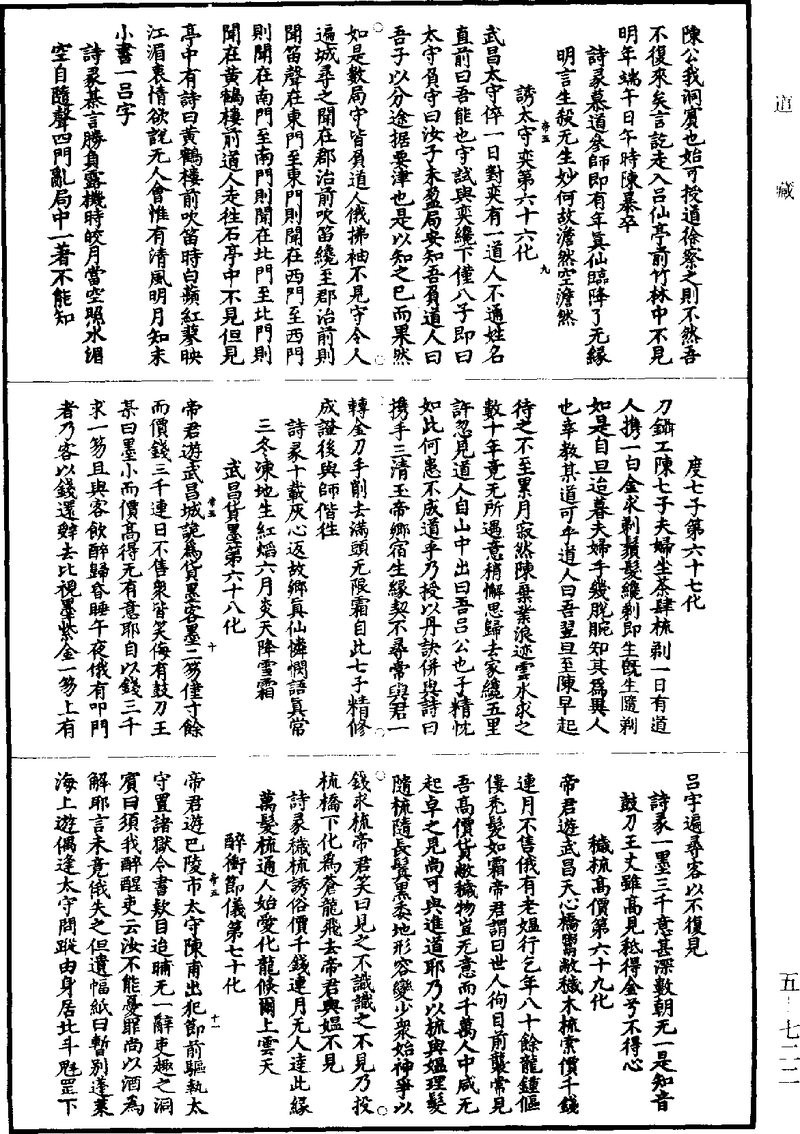 道藏
陳公我洞賓也始可授道徐察之則不然吾
不復來矣言訖走入呂仙亭前竹林中不見
明年端午日午時陳暴卒
詩彖慕道參師即有年真仙臨降了无緣
明言生殺无生妙何故澹然空澹然
誘太守奕第六十六化
帝五
九
武昌太守倅一日對奕有一道人不通姓名
直前曰吾能也守試與奕纔下僅八子即曰
太守負守曰汝子未盈局安知吾負道人曰
吾子以分途据要津也是以知之巳而果然
如是數局守皆負道人俄拂袖不見守令人
遍城尋之聞在郡治前吹笛纔至郡治前則
聞笛聲在東門至東門則聞在西門至西門
則聞在南門至南門則聞在北門至北門則
聞在黃鶴樓前道人走徃石亭中不見但見
亭中有詩曰黃鶴樓前吹笛時白蘋紅蓼映
江湄衷情欲說无人會惟有清風明月知末
小書一呂字
詩彖棊言勝負露機時皎月當空照水湄
空自隨聲四門亂局中一著不能知
度七子第六十七化
刀鑷工陳七子夫婦坐茶肆梳剃一日有道
人携一白金求剃鬚髮纔剃即生旣生隨剃
如是自旦迨暮夫婦手幾脫腕知其爲異人
也幸教某道可乎道人曰吾翌旦至陳早起
待之不至累月寂然陳棄業浪迹雲水求之
數十年竟无所遇意稍懈思歸去家纔五里
許忽見道人自山中出曰吾呂公也子精忱
如此何患不成道乎乃授以丹訣併與詩曰
携手三清玉帝鄉宿生緣契不尋常與君一
轉金刀手削去滿頭无限霜自此七子精修
成證後與師偕徃
詩彖十載灰心返故鄉真仙憐憫語真常
三冬凍地生紅熖六月炎天降雪霜
武昌貨墨第六十八化
帝五
十
帝君遊武昌城詭爲貨墨客墨二笏僅寸餘
而價錢三千連日不售衆皆笑侮有鼓刀王
某曰墨小而價高得无有意耶自以錢三千
求一笏且與客飲醉歸昏睡午夜俄有叩門
者乃客以錢還辤去比視墨紫金一笏上有
呂字遍尋客以不復見
詩彖一墨三千意甚深數朝无一是知音
鼓刀王丈雖高見秪得金兮不得心
穢梳高價第六十九化
帝君遊武昌天心橋鬻敝穢木梳索價千錢
連月不售俄有老媼行乞年八十餘龍鍾傴
僂禿髮如霜帝君謂曰世人徇目前襲常見
吾高價貨敝穢物豈无意而千萬人中咸无
起卓之見尚可與進道耶乃以梳與媼理髮
隨梳隨長鬂黑委地形容變少衆始神爭以
錢求梳帝君笑曰見之不識識之不見乃投
梳橋下化爲蒼龍飛去帝君與媼不見
詩彖穢梳誘俗價千錢連月无人達此緣
萬髮梳通人始愛化龍倏爾上雲天
醉衝節儀第七十化
帝五
十一
帝君遊巴陵市太守陳甫出犯節前驅執太
守置諸獄令書欵目迨晡无一辭吏趣之洞
賓曰須我醉醒吏云汝不能憂罪尚以酒爲
解耶言未竟俄失之但遺幅紙曰暫別蓬莱
海上遊偶逢太守問蹤由身居北斗魁罡下
五-七二二